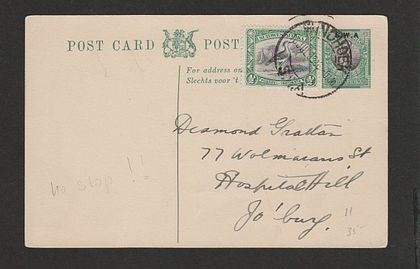 POST CARD POST
For address on
Slechts voor 't
S.W.A
WINDHOEK
Desmond Gratton
77 Wolmarans St
Hospital Hill
Jo'burg.
no stop!!
11
35